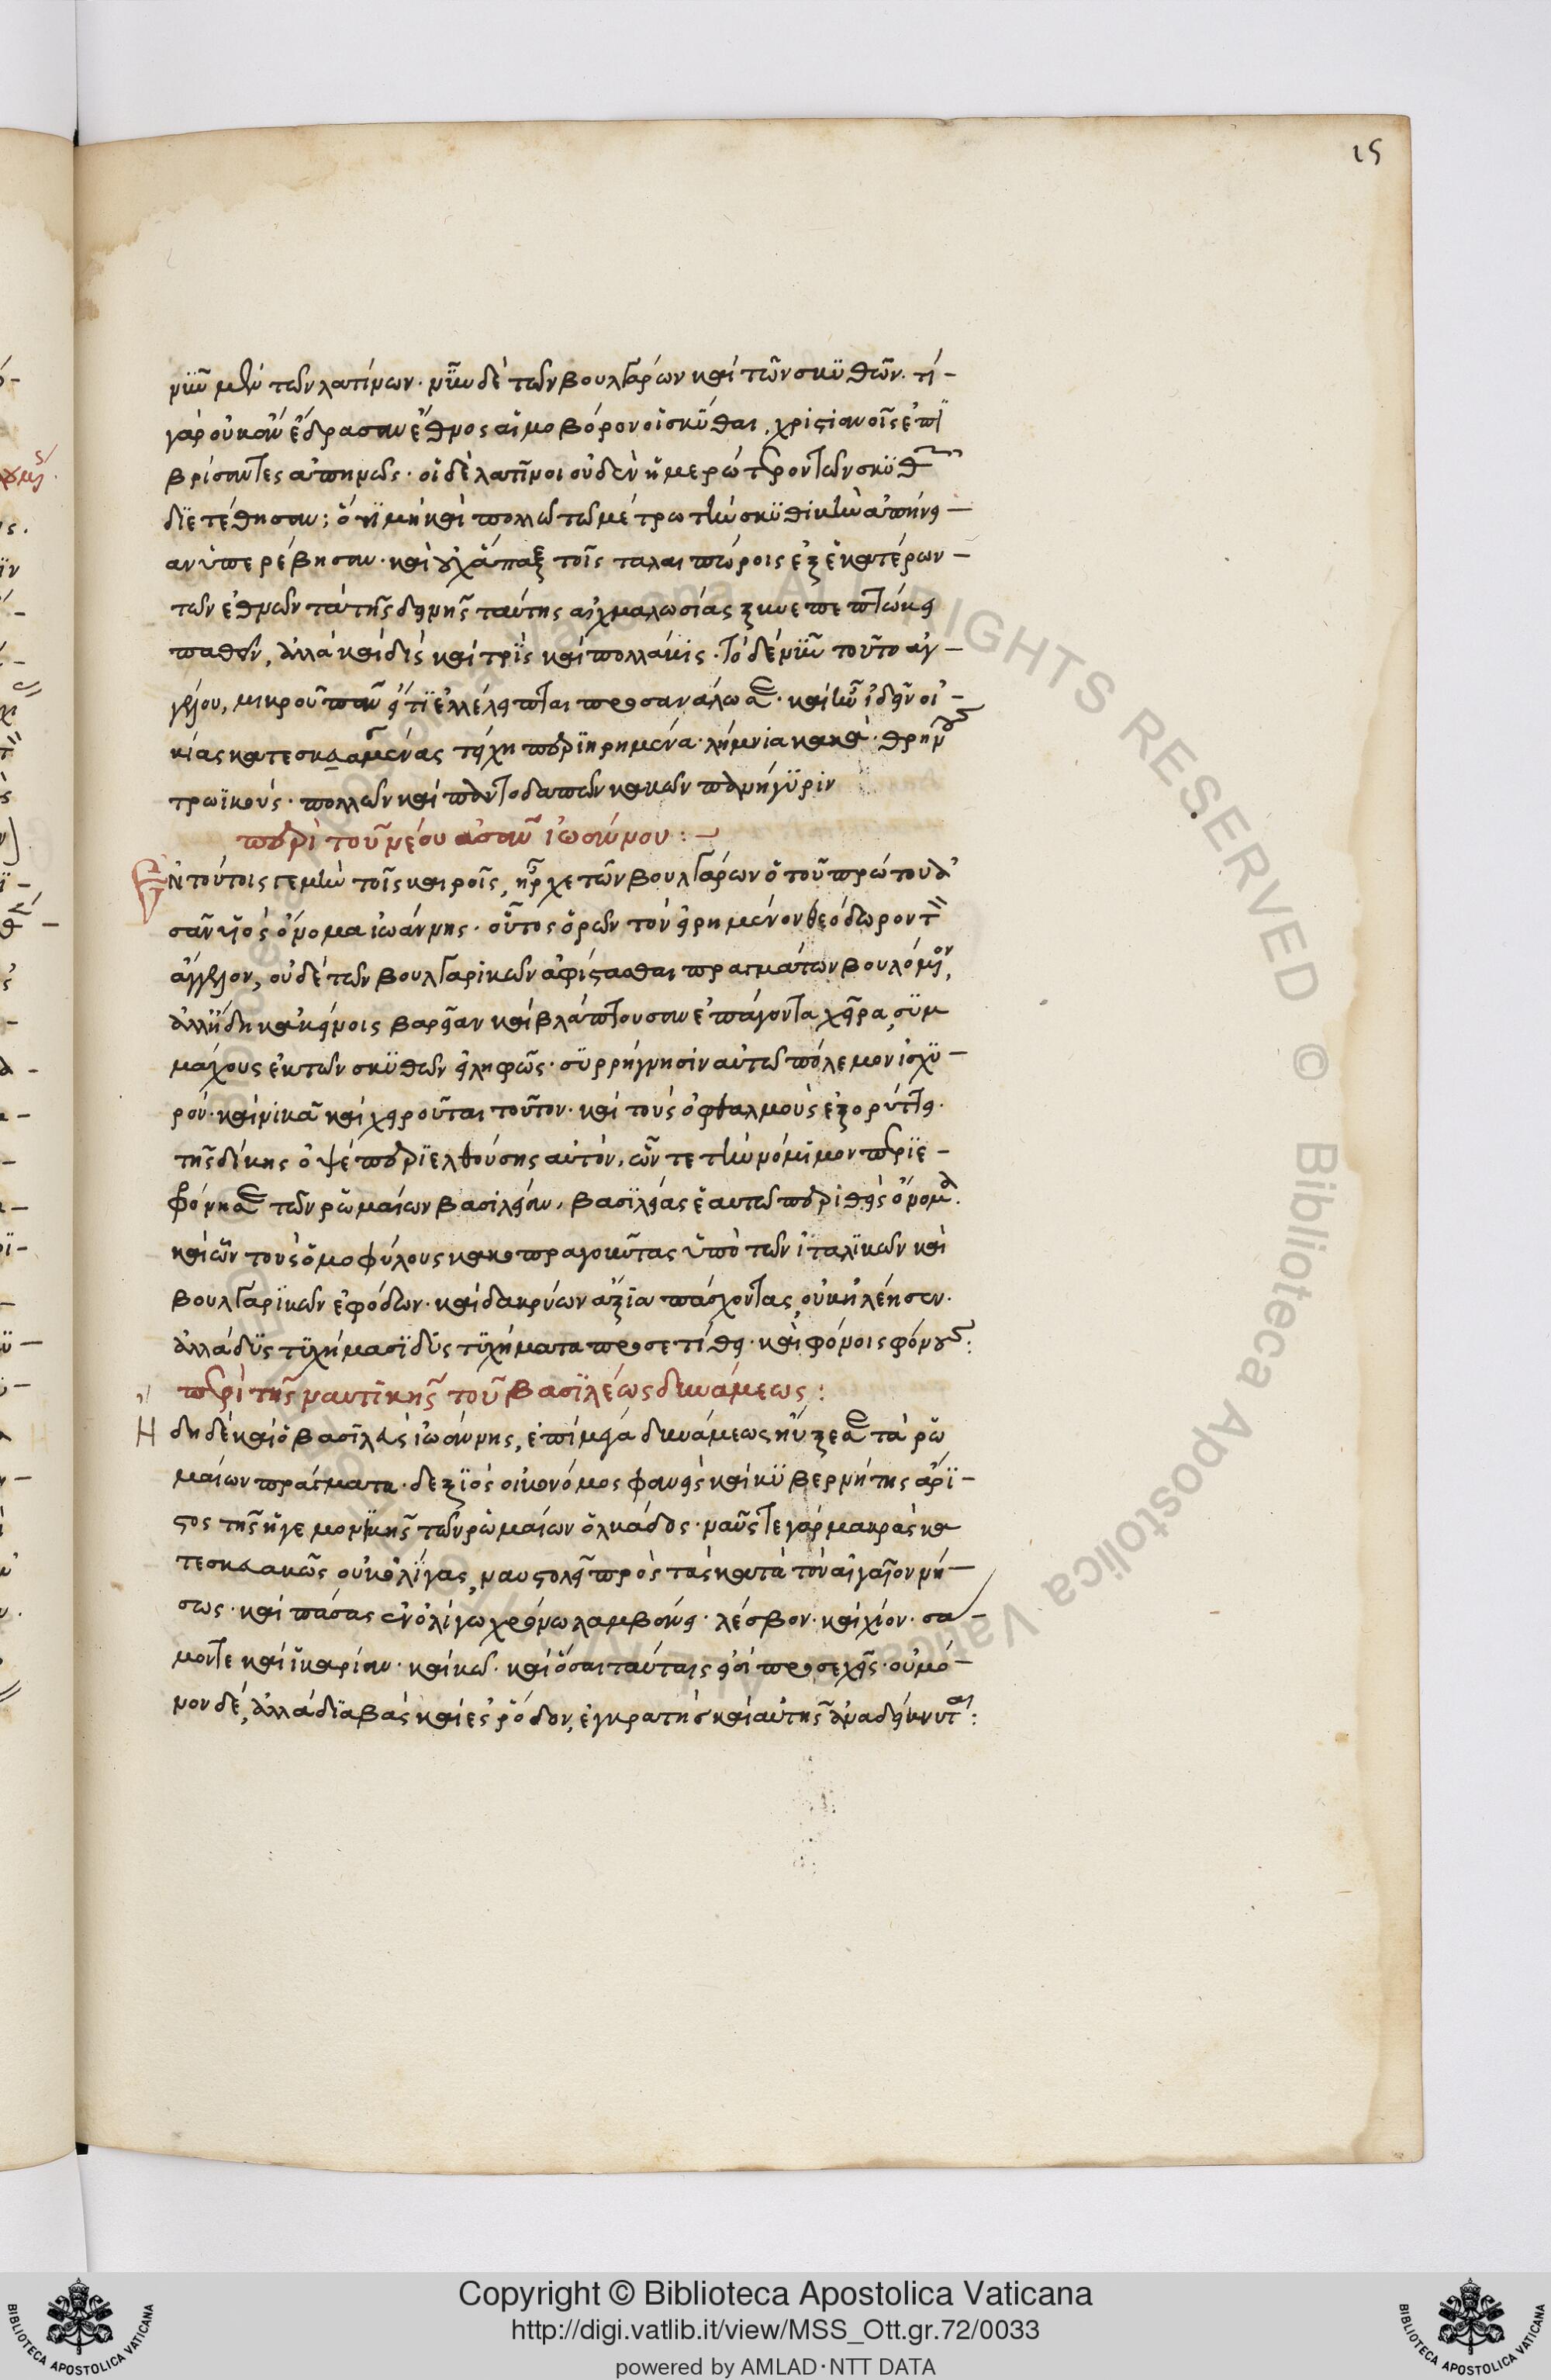 15
νῦν μὲν τῶν λατίνων· νῦν δὲ τῶν βουλγάρων καὶ τῶν σκυθῶν. τί-
γὰρ οὐκ ἂν ἔδρασαν ἔθνος αἱμοβόρον οἱ σκύθαι, χριστιανοῖς ἐπι
βρίσαντες ἀπηνῶς· οἱ δὲ λατῖνοι οὐδὲν ἡμερώτερον τῶν σκυθῶν
διετέθησαν; ὅτι μὴ καὶ πολλῶ τῶ μέτρω τὴν σκυθικὴν ἀπήνει-
αν ὑπερέβησαν· καὶ οὐχ ἅπαξ τοῖς ταλαιπώροις ἐξ ἑκατέρων-
τῶν ἐθνῶν τὰ τῆς δεινῆς ταύτης αἰχμαλωσίας ξυνεπεπτώκει
παθεῖν, ἀλλὰ καὶ δὶς καὶ τρὶς καὶ πολλάκις. τὸ δὲ νῦν τοῦτο ἀγ-
γείου, μικροῦ πᾶν εἴ τι ἐλλέλειπται προσανάλωσε· καὶ ἦν ἰδεῖν οἰ-
κίας κατεσκαμμένας τείχη περιηρημένα· λήμνια κακά· θρήνους
τρωϊκούς· πολλῶν καὶ παντοδαπῶν κακῶν πανήγυριν
περὶ τοῦ νέου ἀσὰν ἰωάννου:-
Ἐν τούτοις γε μὴν τοῖς καιροῖς, ἦρχε τῶν βουλγάρων ὁ τοῦ πρώτου ἀ
σὰν υἱὸς ὄνομα ἰωάννης. οὗτος ὁρῶν τὸν εἰρημένον θεόδωρον τὸν
ἄγγελον, οὐδὲ τῶν βουλγαρικῶν ἀφίστασθαι πραγμάτων βουλόμενον,
ἀλλ' ἤδη κακείνοις βαρεῖαν καὶ βλάπτουσαν ἐπάγοντα χεῖρα, συμ
μάχους ἐκ τῶν σκυθῶν εἰληφὼς· συρρήγνυσιν αὐτῶ πόλεμον ἰσχυ-
ρόν· καὶ νικᾶ καὶ χειροῦται τοῦτον· καὶ τοὺς ὀφθαλμοὺς ἐξορύττει·
τῆς δίκης ὀψὲ περιελθούσης αὐτόν, ὧν τε τὴν νόμιμον περιε-
φρόνησε τῶν ῥωμαίων βασιλείαν, βασιλείας ἑαυτῶ περιθεὶς ὄνομα.
καὶ ὧν τοὺς ὁμοφύλους κακοπραγοῦντας ὑπὸ τῶν ἰταλικῶν καὶ
βουλγαρικῶν ἐφόδων· καὶ δακρύων ἄξια πάσχοντας, οὐκ ἠλέησεν.
ἀλλὰ δυστυχήμασι δυστυχήματα προσετίθει· καὶ φόνοις φόνους:
περὶ τῆς ναυτικῆς τοῦ βασιλέως δυνάμεως:
Ἤδη δὲ καὶ ὁ βασιλεὺς ἰωάννης, ἐπὶ μέγα δυνάμεως ηὔξησε τὰ ῥω
μαίων πράγματα. δεξιὸς οἰκονόμος φανεὶς καὶ κυβερνήτης ἄρι-
στος τῆς ἡγεμονικῆς τῶν ῥωμαίων ὁλκάδος· ναῦς τε γὰρ μακρὰς κα
τεσκευακὼς οὐκ ὀλίγας, ναυστολεῖ πρὸς τὰς κατὰ τὸν αἰγαῖον νή-
σους· καὶ πάσας ἐν ὀλίγω χρόνω λαμβάνει· λέσβον· καὶ χίον· σά-
μον τε καὶ ἰκαρίαν· καὶ κῶ· καὶ ὅσαι ταύταις εἰσὶ προσεχεῖς· οὐ μό-
νον δέ, ἀλλὰ διαβὰς καὶ ἐς ῥόδον, ἐγκρατὴς καὶ αὐτῆς ἀναδείκνυται:
ALL RIGHTS RESERVED © Biblioteca Apostolica Vaticana
Copyright © Biblioteca Apostolica Vaticana
http://digi.vatlib.it/view/MSS_Ott.gr.72/0033
powered by AMLAD·NTT DATA
BIBLIOTECA APOSTOLICA VATICANA
BIBLIOTECA APOSTOLICA VATICANA